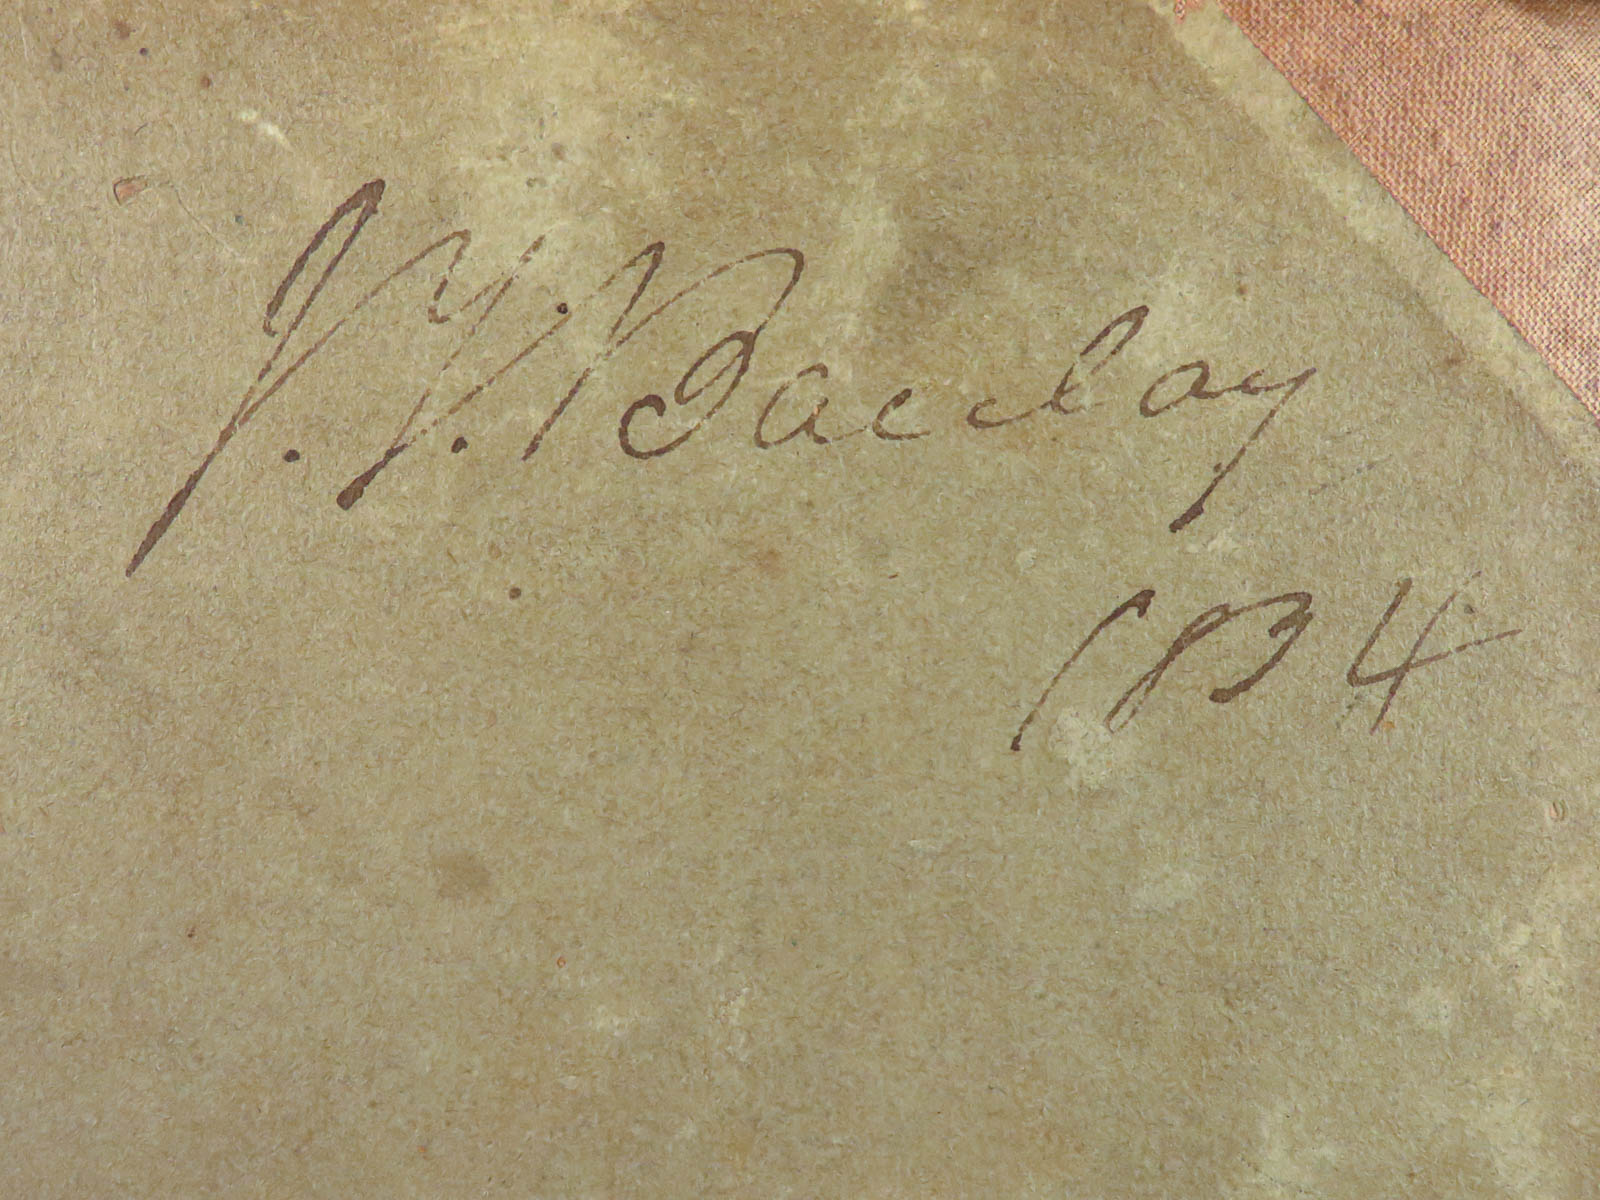 J. Y. Barclay
1834